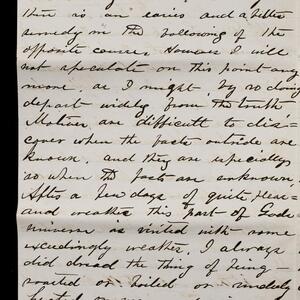 there is an easier and a better
remedy in the following of the
opposite course. However I will
not speculate on this point any
more, as I might, by so doing
depart widely from the truth
Motives are difficult to dis-
cover when the facts outside are
known, and they are especially
so when the facts are unknown.
After a few days of quite pleas-
and weather this part of Gods
universe is visited with some
exceedingly weather. I always
did dread the thing of being
roasted or boiled or rudely